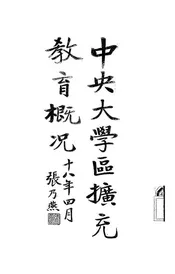 中央大學區擴充
教育概况
十八年四月
張乃燕